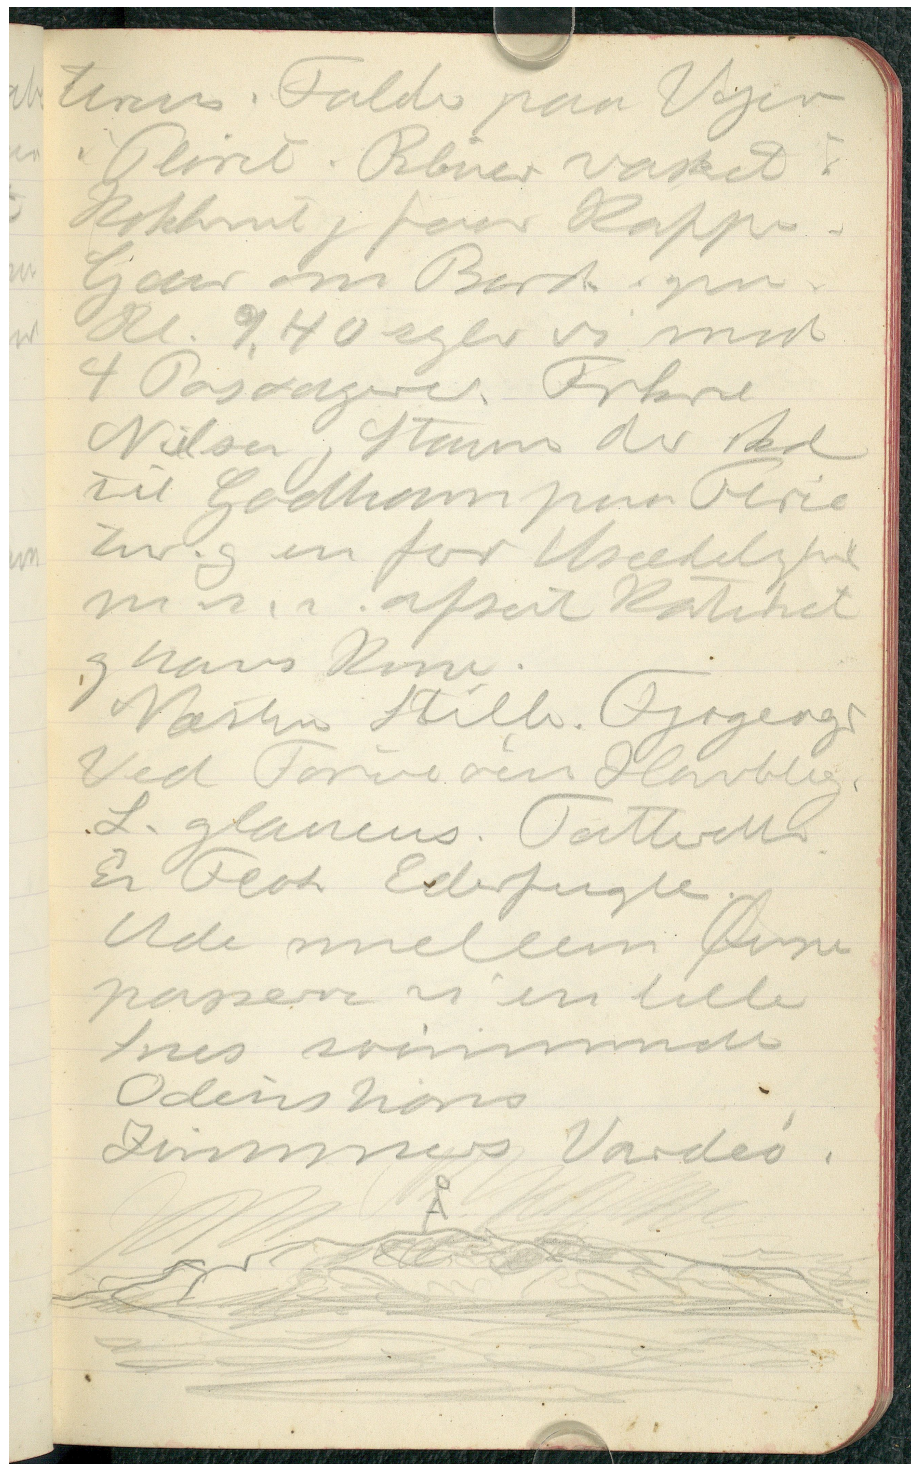 terens. Falder paa Vejen
i Pløret. Bliver vasket i
Kokhuset, faar Kaffe.
Gaar om Bord igen.
Kl. 9,40 sejler vi med
4 Passagerer. Frkne
Nilsen, Staun der skal
til Godhavn paa Ferie
tur og en for Usædelighed
m.m. afsat Katiket
og hans Kone.
Næsten Stille.
Ved Havblig.
L. glaucus. Tatteratter.
En Flok Ederfugle.
Ude mellem Øerne
passerer vi en lille
svømmende
Odinshøns
Zimmers Vardeø.